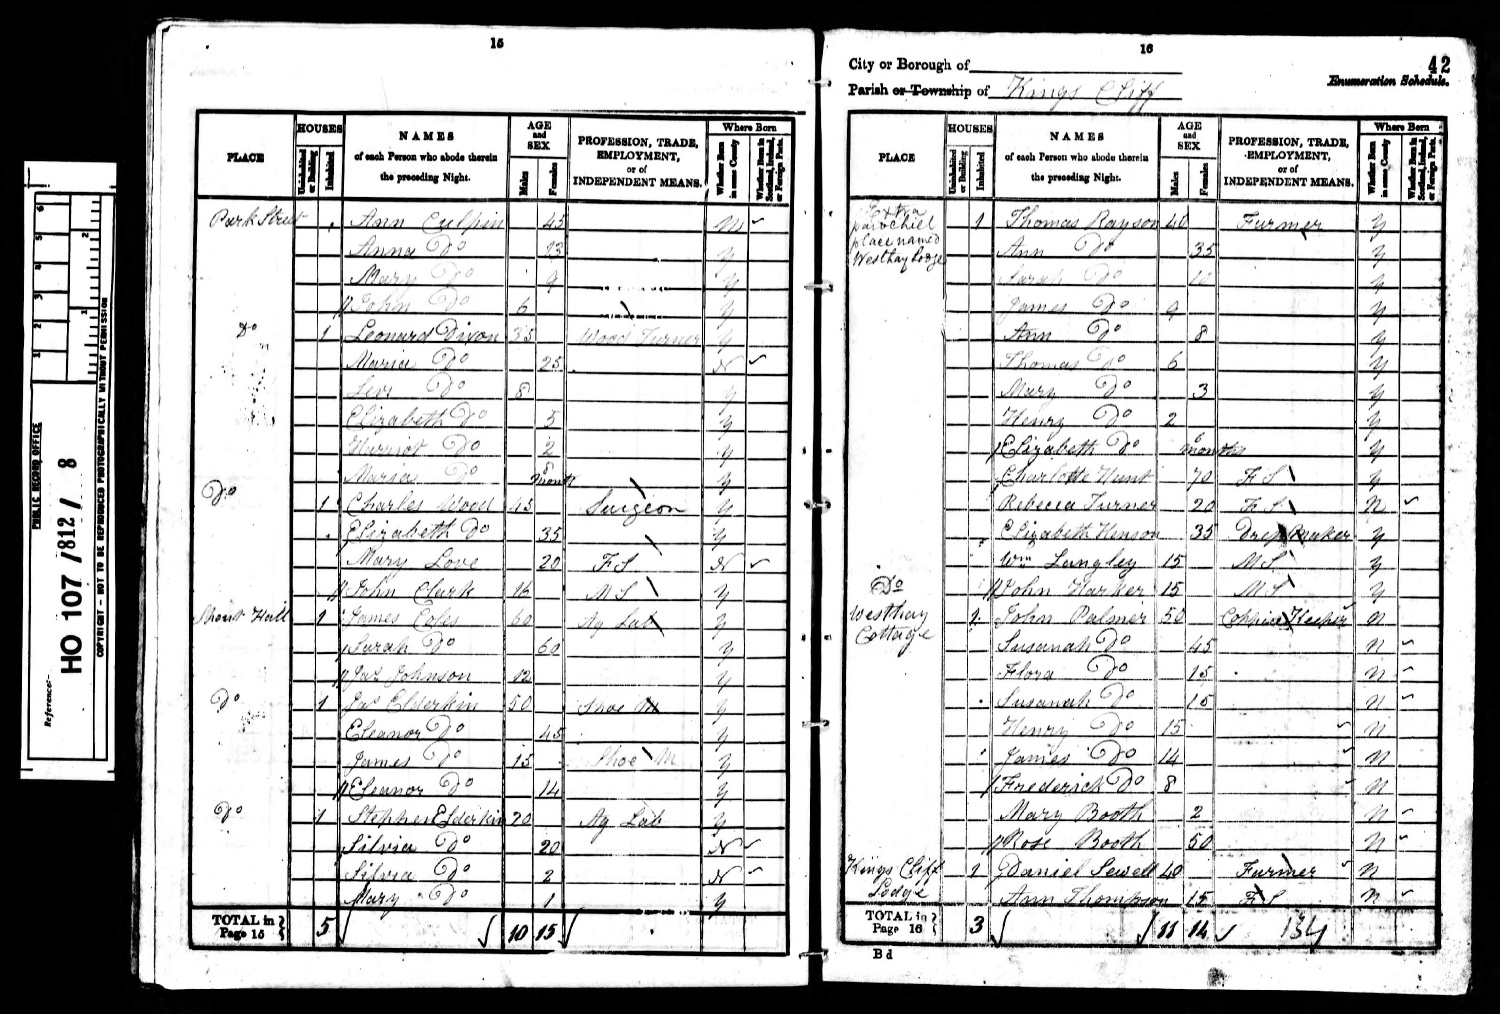 15
PLACE
HOUSES
Uninhabited or Building
Inhabited
NAMES
of each Person who abode therein
the preceding Night.
AGE
and
SEX
Males
Females
PROFESSION, TRADE,
EMPLOYMENT,
or of
INDEPENDENT MEANS.
Where Born
Whether Born in same County
Whether Born in Scotland, Ireland, or Foreign Parts.
Park Street Ann Culpin 45
Anna Do 13 y
Mary Do 9 y
John Do 6 y
Do 1 Leonard Dixon 35 Wood Turner y
Maria Do 25 N
Levi Do 8 y
Elizabeth Do 5 y
Harriot Do 2 y
Maria Do 8 months y
Do 1 Charles Wood 45 Surgeon y
Elizabeth Do 35 y
Mary Love 20 F S N
John Clark 16 M S y
1 James Coles 60 Ag Lab y
Sarah Do 60 y
Jas Johnson 12 y
Do 1 Jas Elderkin 50 Shoe M y
Eleanor Do 45 y
James Do 15 Shoe M y
Eleanor Do 14 y
Do 1 Stephen Elderkin 20 Ag Lab y
Silvia Do 20 N
Silvia Do 2 N
Mary Do 1 y
TOTAL in
Page 15 5 10 15
16
42
City or Borough of
Enumeration Schedule.
Parish or Township of Kings Cliff
PLACE
HOUSES
Uninhabited or Building
Inhabited
NAMES
of each Person who abode therein
the preceding Night.
AGE
and
SEX
Males
Females
PROFESSION, TRADE,
EMPLOYMENT,
or of
INDEPENDENT MEANS.
Where Born
Whether Born in same County
Whether Born in Scotland, Ireland, or Foreign Parts.
Extra
parochiel
place named
Westhay Lodge
1 Thomas Rayson 40 Farmer y
Ann Do 35 y
Sarah Do 10 y
James Do 9 y
Ann Do 8 y
Thomas Do 6 y
Mary Do 3 y
Henry Do 2 y
Elizabeth Do 6 months y
Charlotte Hunt 70 F S y
Rebecca Turner 20 F S n
Elizabeth Henson 35 y
Wm Langley 15 M S y
Do John Harker 15 M S y
Westhay
Cottage
1 John Palmer 50 n
Susanah Do 45 n
Flora Do 15 n
Susanah Do 15 n
Henry Do 15 n
James Do 14 n
Frederick Do 8 n
Mary Booth 2 n
Rose Booth 50 n
Kings Cliff
Lodge
1 Daniel Sewell 40 Farmer n
Ann Thompson 15 F S n
TOTAL in
Page 16 3 11 14 134
B d
PUBLIC RECORD OFFICE
Reference:-
HO 107 / 812 / 8
COPYRIGHT - NOT TO BE REPRODUCED PHOTOGRAPHICALLY WITHOUT PERMISSION
1 2 3 4 5 6
1 2